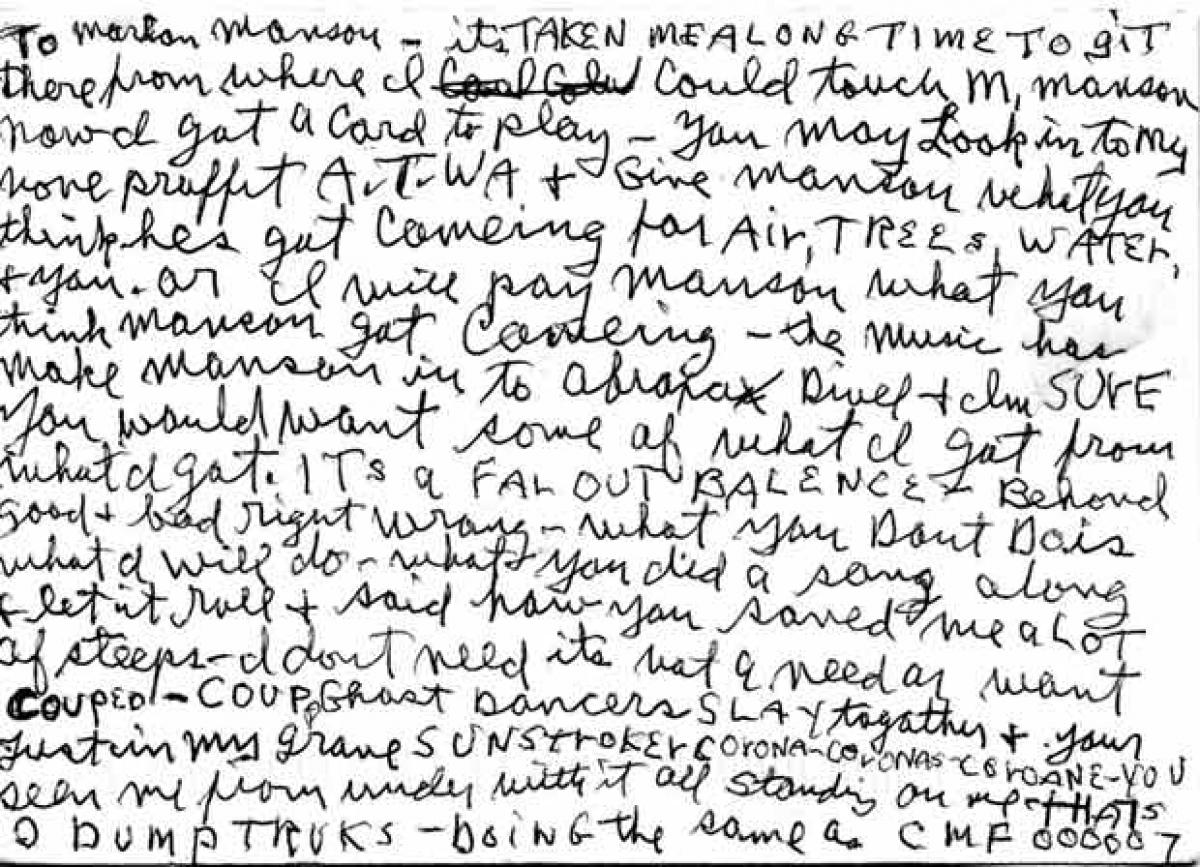 To marlon manson - its TAKEN ME A LONG TIME TO giT
there from where I could touch M, manson
now I got a card to play - you may Look in to My
none proffit A.T.WA + Give manson what you
think hes got comeing for Air, TREEs, WATER,
+ you. or I will pay manson what you
think manson got comeing - the music has
make manson in to abraxax Divel + Im SURE
you would want some of what I got from
what I got. ITs a FAL OUT BALENCE - Behond
good + bad right wrong - what you Dont Do is
what I will do - what you did a song along
+ let it roll + said how you saved me a LOT
of steeps - I dont need its not a need or want
COUPED - COUP Ghost Dancers SLAY togather + your
just in my grave SUNStrOKEr COrONA-COrONAS-COrOANE-YOU
seen me from under with it all standing on me THATS
2 DUMP TRUKS - DOING the same as CMF 000007